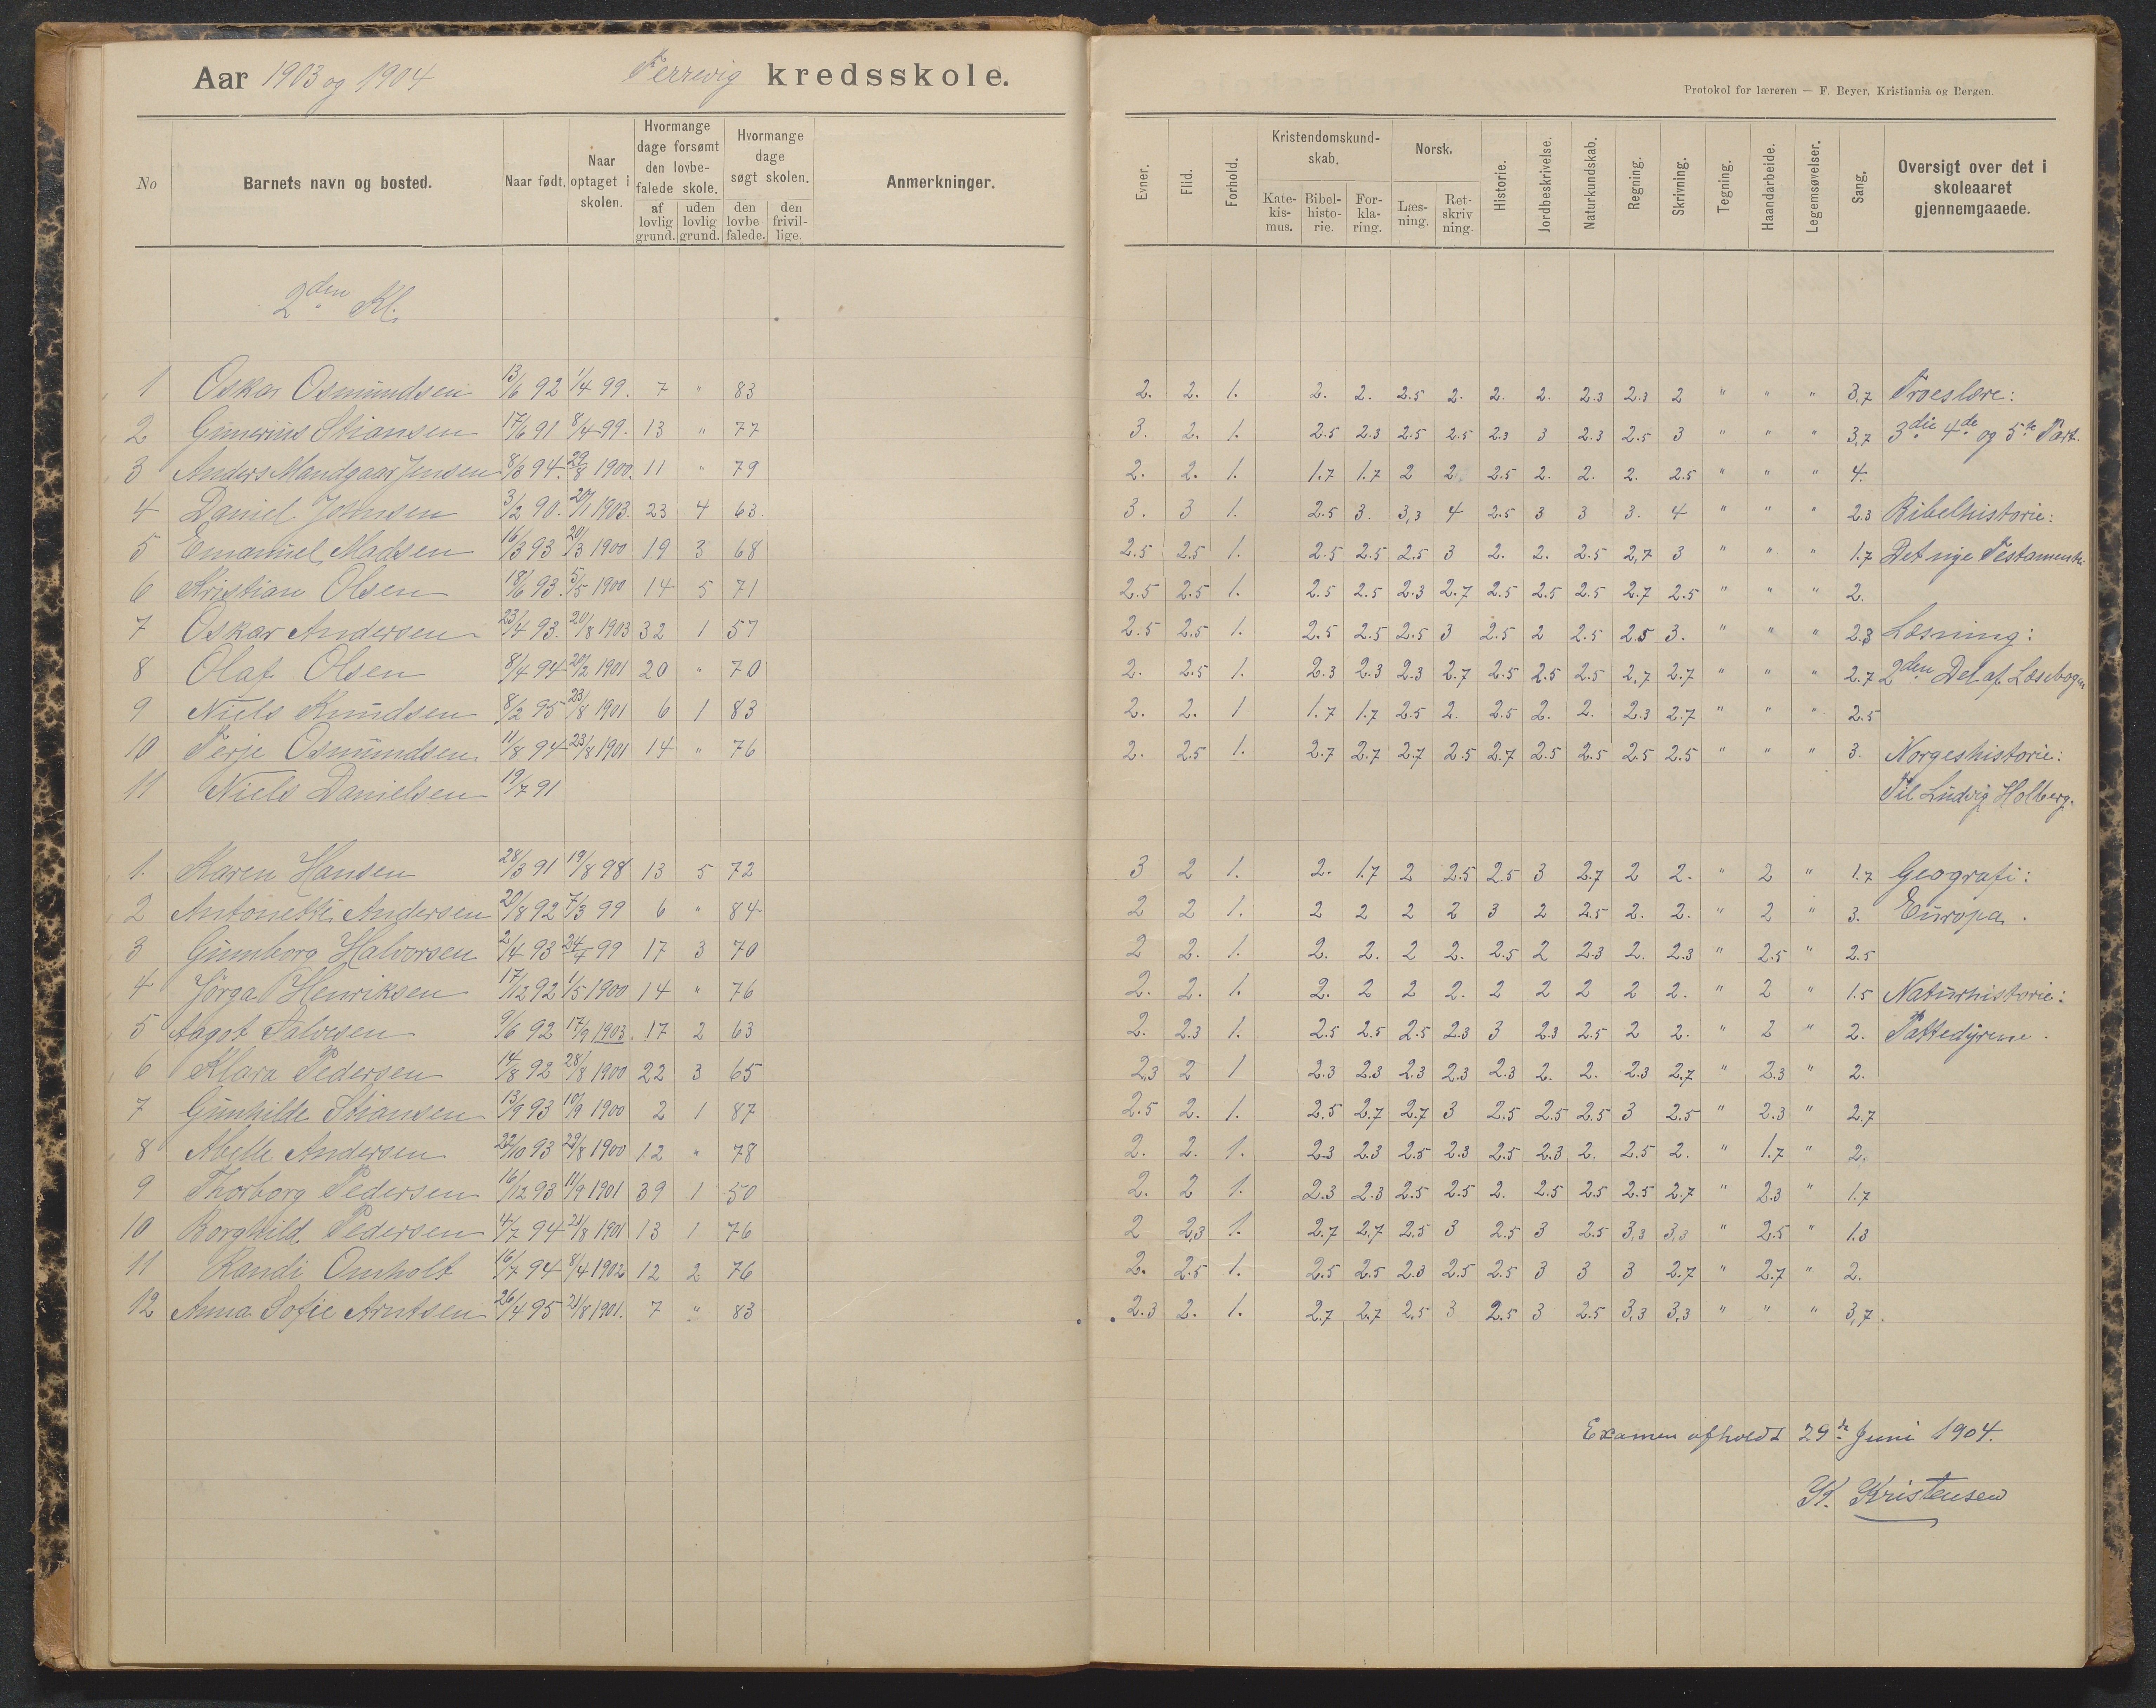 Aar 1903 og 1904 Ferrevig kredsskole.
Protokol for læreren — F. Beyer, Kristiania og Bergen.
No Barnets navn og bosted. Naar født. Naar optaget i skolen. Hvormange dage forsømt den lovbefalede skole. af lovlig grund. uden lovlig grund. Hvormange dage søgt skolen. den lovbefalede. den frivillige. Anmerkninger.
Evner. Flid. Forhold. Kristendomskundskab. Katekismus. Bibelhistorie. Forklaring. Norsk. Læsning. Retskrivning. Historie. Jordbeskrivelse. Naturkundskab. Regning. Skrivning. Tegning. Haandarbeide. Legemsøvelser. Sang. Oversigt over det i skoleaaret gjennemgaaede.
2den Kl.
1 Oskar Osmundsen 13/6 92 1/4 99. 7 " 83 2. 2. 1. 2. 2. 2.5 2. 2. 2. 2.3 2.3 2 " " " 3,7 Troeslære:
2 Gunerius Stiansen 17/6 91 8/4 99. 13 " 77 3. 2. 1. 2.5 2.3 2.5 2.5 2.3 3 2.3 2.5 3 " " " 3,7 3die 4de og 5te Part.
3 Anders Mandgaar Jensen 8/3 94. 29/8 1900. 11 " 79 2. 2. 1. 1.7 1.7 2 2. 2.5 2. 2. 2. 2.5 " " " 4.
4 Daniel Johnsen 3/2 90. 20/1 1903. 23 4 63. 3. 3 1. 2.5 3. 3,3 4 2.5 3 3 3. 4 " " " 2.3 Bibelhistorie:
5 Emanuel Madsen 16/3 93 20/3 1900 19 3 68 2.5 2.5 1. 2.5 2.5 2.5 3 2. 2. 2.5 2,7 3 " " " 1.7 Det nye Testamente.
6 Kristian Olsen 18/6 93. 5/5 1900 14 5 71 2.5 2.5 1. 2.5 2.5 2.3 2.7 2.5 2.5 2.5 2.7 2.5 " " " 2.
7 Oskar Andersen 23/4 93. 20/8 1903 32 1 57 2.5 2.5 1. 2.5 2.5 2.5 3 2.5 2 2.5 2.5 3. " " " 2.3 Læsning:
8 Olaf Olsen 8/4 94 20/2 1901 20 " 70 2. 2.5 1. 2.3 2.3 2.3 2.7 2.5 2.5 2.5 2,7 2.7 " " " 2.7 2den Del af Læsebogen
9 Niels Knudsen 8/2 95 23/8 1901 6 1 83 2. 2. 1 1.7 1.7 2.5 2. 2.5 2. 2. 2.3 2.7 " " " 2.5
10 Terje Osmundsen 11/8 94 23/8 1901 14 " 76 2. 2.5 1. 2.7 2.7 2.7 2.5 2.7 2.5 2.5 2.5 2.5 " " " 3. Norgeshistorie:
11 Niels Danielsen 19/7 91 Til Ludvig Holberg.
1. Karen Hansen 28/3 91 19/8 98 13 5 72 3 2 1. 2. 1.7 2 2.5 2.5 3 2.7 2 2. " 2 " 1.7 Geografi:
2 Antonette Andersen 20/8 92 7/3 99 6 " 84 2 2 1. 2 2 2 2 3 2 2.5 2. 2. " 2 " 3. Europa.
3 Gunnborg Halvorsen 2/4 93 24/4 99 17 3 70 2 2. 1. 2. 2. 2 2. 2.5 2 2.3 2. 2.3 " 2.5 " 2.5
4 Jörga Henriksen 17/12 92 1/5 1900 14 " 76 2. 2. 1. 2. 2 2 2. 2 2 2 2 2. " 2 " 1.5 Naturhistorie:
5 Aagot Salvesen 9/6 92 17/9 1903. 17 2 63 2. 2.3 1. 2.5 2.5 2.5 2.3 3 2.3 2.5 2 2. " 2 " 2. Pattedyrene.
6 Klara Pedersen 14/8 92 28/8 1900 22 3 65 2,3 2 1 2.3 2.3 2.3 2.3 2.3 2. 2. 2.3 2,7 " 2.3 " 2.
7 Gunhilde Stiansen 13/9 93 10/9 1900 2 1 87 2.5 2. 1. 2.5 2.7 2.7 3 2.5 2.5 2.5 3 2.5 " 2.3 " 2.7
8 Abelle Andersen 22/10 93 29/8 1900 12 " 78 2. 2. 1. 2.3 2.3 2.5 2.3 2.5 2.3 2. 2.5 2. " 1.7 " 2.
9 Thorborg Pedersen 16/12 93 11/9 1901 39 1 50 2. 2 1. 2.3 2.3 2.5 2.5 2. 2.5 2.5 2.5 2.7 " 2.3 " 1.7
10 Borghild Pedersen 4/7 94 21/8 1901 13 1 76 2 2,3 1. 2.7 2.7 2.5 3 2.5 3 2.5 3,3 3,3 " 2.5 " 1.3
11 Randi Omholt 16/7 94 8/4 1902 12 2 76 2. 2.5 1. 2.5 2.5 2.3 2.5 2.5 3 3 3 2.7 " 2.7 " 2.
12 Anna Sofie Arntsen 26/4 95 21/8 1901. 7 " 83 2.3 2. 1. 2.7 2.7 2,5 3 2.5 3 2.5 3,3 3,3 " " " 3,7
Examen afholdt 29de Juni 1904.
K. Kristensen